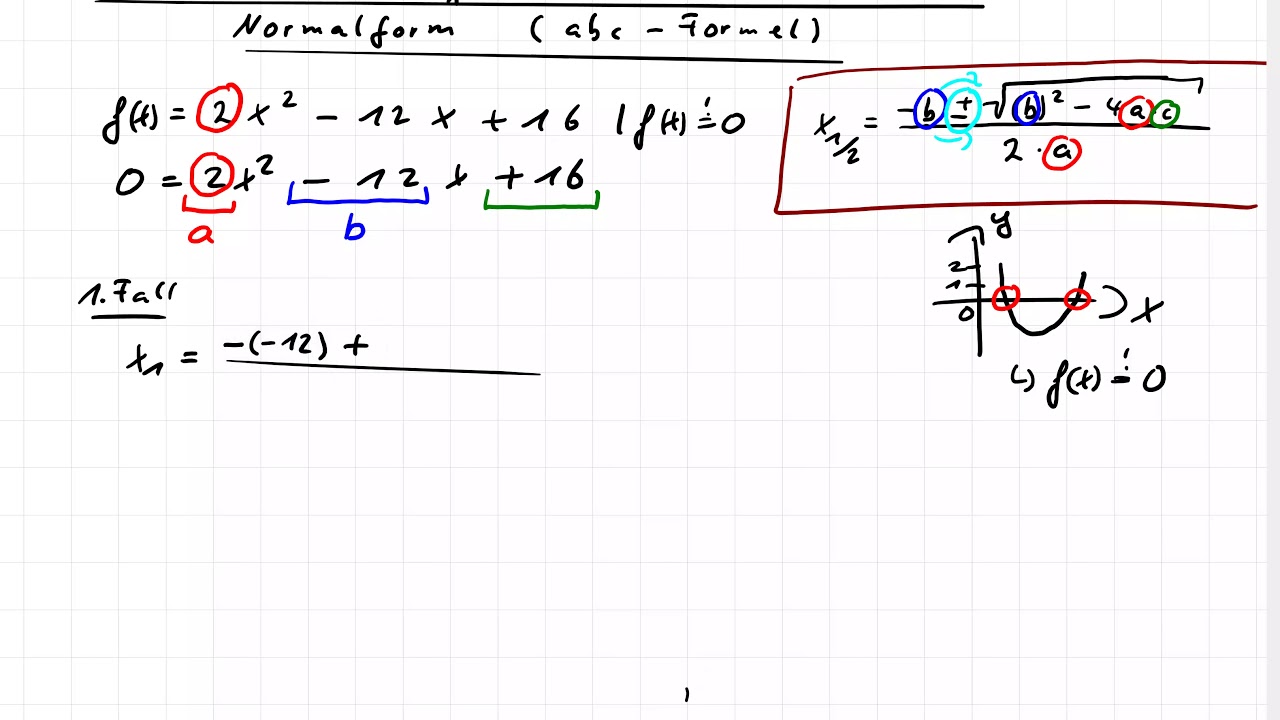 Normalform (abc - Formel)
f(x) = 2x² - 12x + 16 | f(x) != 0
0 = 2x² - 12x + 16
a b
x1/2 = (-b ± √(b)² - 4ac) / (2 · a)
y
2
1
0
x
↳ f(x) != 0
1. Fall
x1 = -(-12) +